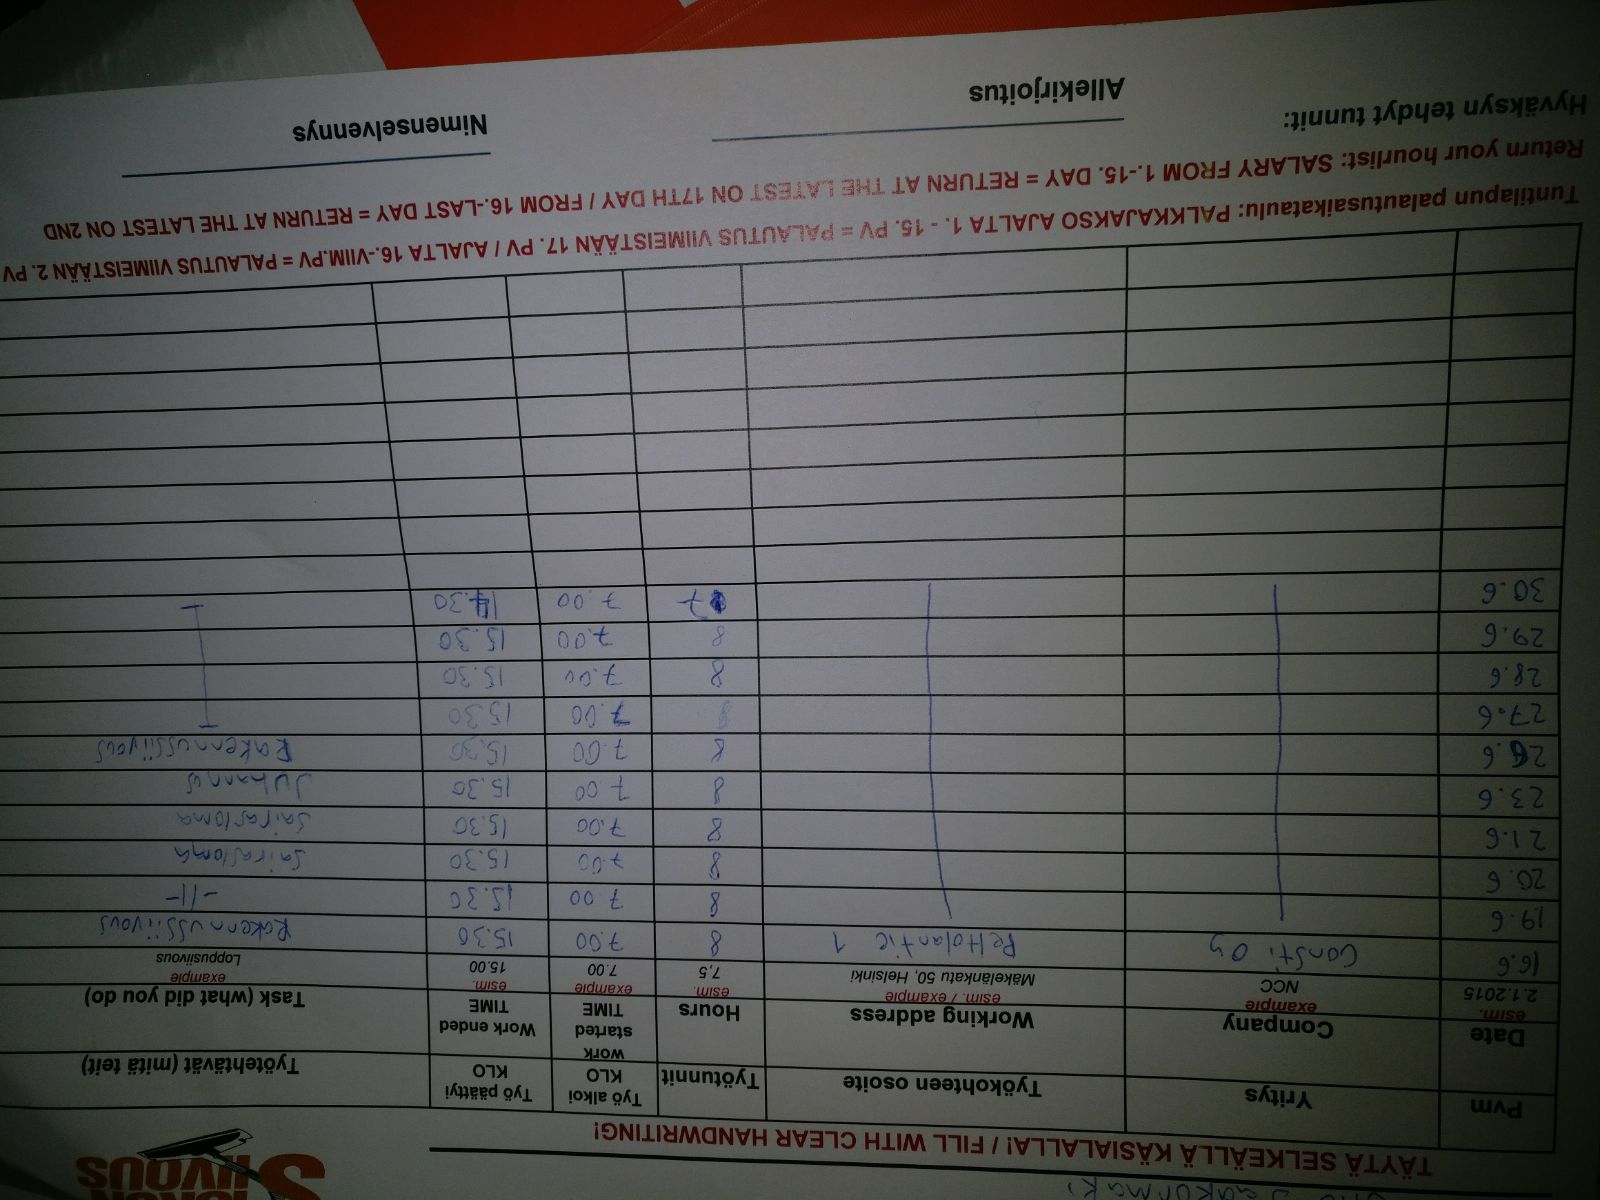 Jaakonmäki
SIIVOUS
TÄYTÄ SELKEÄLLÄ KÄSIALALLA! / FILL WITH CLEAR HANDWRITING!
Pvm Yritys Työkohteen osoite Työtunnit Työ alkoi KLO Työ päättyi KLO Työtehtävät (mitä teit)
Date Company Working address Hours work started TIME Work ended TIME Task (what did you do)
esim. 2.1.2015 example NCC esim. / example Mäkelänkatu 50, Helsinki esim. 7,5 example 7.00 esim. 15.00 example Loppusiivous
16.6 Consti Oy Peltolantie 1 8 7.00 15.30 Rakennussiivous
19.6 8 7.00 15.30 -||-
20.6 8 7.00 15.30 Sairasloma
21.6 8 7.00 15.30 Sairasloma
23.6 8 7.00 15.30 Juhannus
26.6 8 7.00 15.30 Rakennussiivous
27.6 8 7.00 15.30
28.6 8 7.00 15.30
29.6 8 7.00 15.30
30.6 7 7.00 14.30
Tuntilapun palautusaikataulu: PALKKAJAKSO AJALTA 1. - 15. PV = PALAUTUS VIIMEISTÄÄN 17. PV / AJALTA 16.-VIIM.PV = PALAUTUS VIIMEISTÄÄN 2. PV
Return your hourlist: SALARY FROM 1.-15. DAY = RETURN AT THE LATEST ON 17TH DAY / FROM 16.-LAST DAY = RETURN AT THE LATEST ON 2ND
Hyväksyn tehdyt tunnit:
Allekirjoitus Nimenselvennys